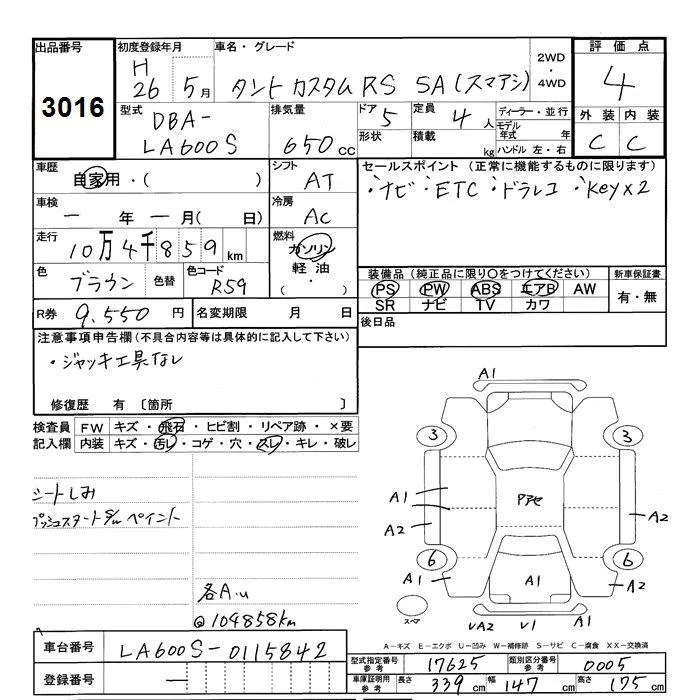 出品番号
3016
初度登録年月
H
26 5月
車名・グレード
タント カスタム RS SA(スマアシ)
2WD
・
4WD
評価点
4
型式
DBA-
LA600S
排気量
650cc
ドア
5
定員
4人
形状
積載
kg
ディーラー・並行
モデル
年式 年
ハンドル 左・右
外装 内装
C C
車歴
自家用・( )
シフト
AT
車検
一年一月( 日)
冷房
AC
走行
10万4千859km
燃料
ガソリン
軽油
・
( )
色
ブラウン
色替
色コード
R59
R券
9.550円
名変期限 月 日
セールスポイント(正常に機能するものに限ります)
・ナビ ・ETC ・ドラレコ ・Key×2
装備品(純正品に限り〇をつけてください)
PS PW ABS エアB AW
SR ナビ TV カワ
新車保証書
有・無
後日品
注意事項申告欄(不具合内容等は具体的に記入して下さい)
・ジャッキ工具なし
修復歴 有〔箇所 〕
検査員
記入欄
FW キズ・飛石・ヒビ割・リペア跡・×要
内装 キズ・汚レ・コゲ・穴・スレ・キレ・破レ
シートしみ
プッシュスタートS/w ペイント
各A.u
@104858km
A1
3
3
A1
A2
Pアセ
A2
6
6
A1
A1
A2
スペア
UA2
U1
A1
A-キズ E-エクボ U-凹み W-補修跡 S-サビ C-腐食 XX-交換済
車台番号
LA600S-0115842
登録番号
一
型式指定番号
参考
17625
類別区分番号
参考
0005
車庫証明用
参考
長さ
339cm
幅
147cm
高さ
175cm